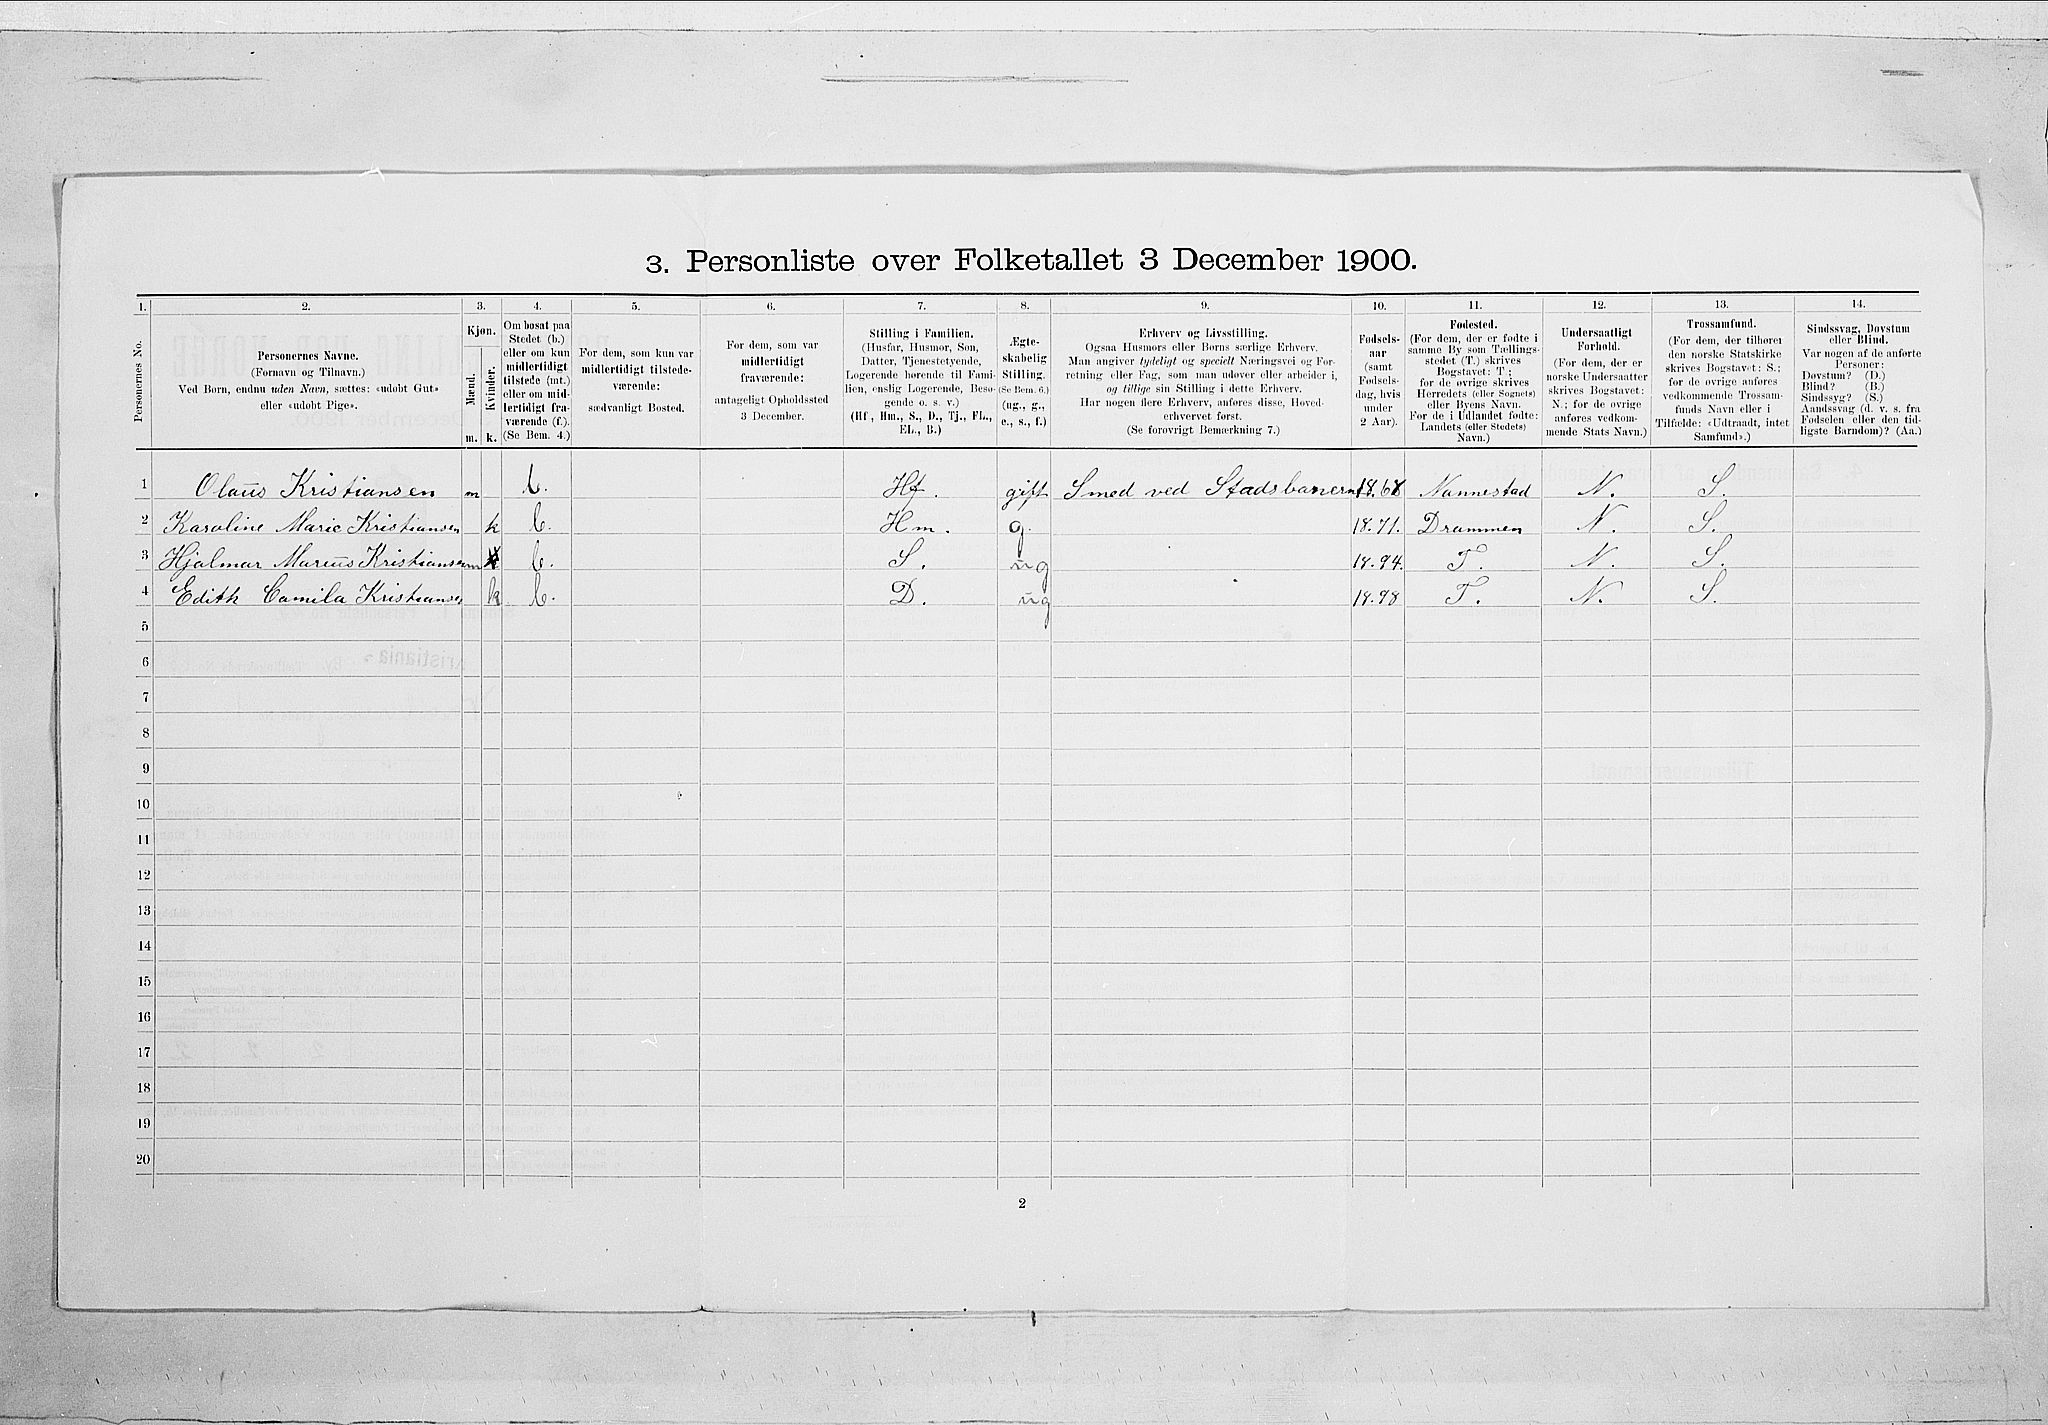 3. Personliste over Folketallet 3 December 1900.
1. 2. 3. 4. 5. 6. 7. 8. 9. 10. 11. 12. 13. 14.
Personernes No.
Personernes Navne.
(Fornavn og Tilnavn.)
Ved Børn, endnu uden Navn, sættes: «udøbt Gut»
eller «udøbt Pige».
Kjøn.
Mænd.
m.
Kvinder.
k.
Om bosat paa
Stedet (b.)
eller om kun
midlertidigt
tilstede (mt.)
eller om mid-
lertidigt fra-
værende (f.).
(Se Bem. 4.)
For dem, som kun var
midlertidigt tilstede-
værende:
sædvanligt Bosted.
For dem, som var
midlertidigt
fraværende:
antageligt Opholdssted
3 December.
Stilling i Familien.
(Husfar, Husmor, Søn,
Datter, Tjenestetyende,
Logerende hørende til Fami-
lien, enslig Logerende, Besø-
gende o. s. v.)
(Hf., Hm., S., D., Tj., FL.,
EL., B.)
Ægte-
skabelig
Stilling.
(Se Bem. 6.)
(ug., g.,
e., s., f.)
Erhverv og Livsstilling.
Ogsaa Husmors eller Børns særlige Erhverv.
Man angiver tydeligt og specielt Næringsvei og For-
retning eller Fag, som man udøver eller arbeider i,
og tillige sin Stilling i dette Erhverv.
Har nogen flere Erhverv, anføres disse, Hoved-
erhvervet først.
(Se forøvrigt Bemærkning 7.)
Fødsels-
aar
(samt
Fødsels-
dag, hvis
under
2 Aar).
Fødested.
(For dem, der er fødte i
samme By som Tællings-
stedet (T.) skrives
Bogstavet: T;
for de øvrige skrives
Herredets (eller Sognets)
eller Byens Navn.
For de i Udlandet fødte:
Landets (eller Stedets)
Navn.)
Undersaatligt
Forhold.
(For dem, der er
norske Undersaatter
skrives Bogstavet:
N.; for de øvrige
anføres vedkom-
mende Stats Navn.)
Trossamfund.
(For dem, der tilhører
den norske Statskirke
skrives Bogstavet: S.;
for de øvrige anføres
vedkommende Trossam-
funds Navn eller i
Tilfælde: «Udtraadt, intet
Samfund».)
Sindssvag, Døvstum
eller Blind.
Var nogen af de anførte
Personer:
Døvstum? (D.)
Blind? (B.)
Sindssyg? (S.)
Aandssvag (d. v. s. fra
Fødselen eller den tid-
ligste Barndom)? (Aa.)
1 Olaus Kristiansen m b. Hf. gift Smed ved Stadsbanerne 1868 Nannestad N. S.
2 Karoline Marie Kristiansen k b. Hm. g. 1871. Drammen N. S.
3 Hjalmar Marius Kristiansen m b. S. ug 1894. T. N. S.
4 Edith Camila Kristiansen k b. D. ug 1898 T. N. S.
5
6
7
8
9
10
11
12
13
14
15
16
17
18
19
20
2